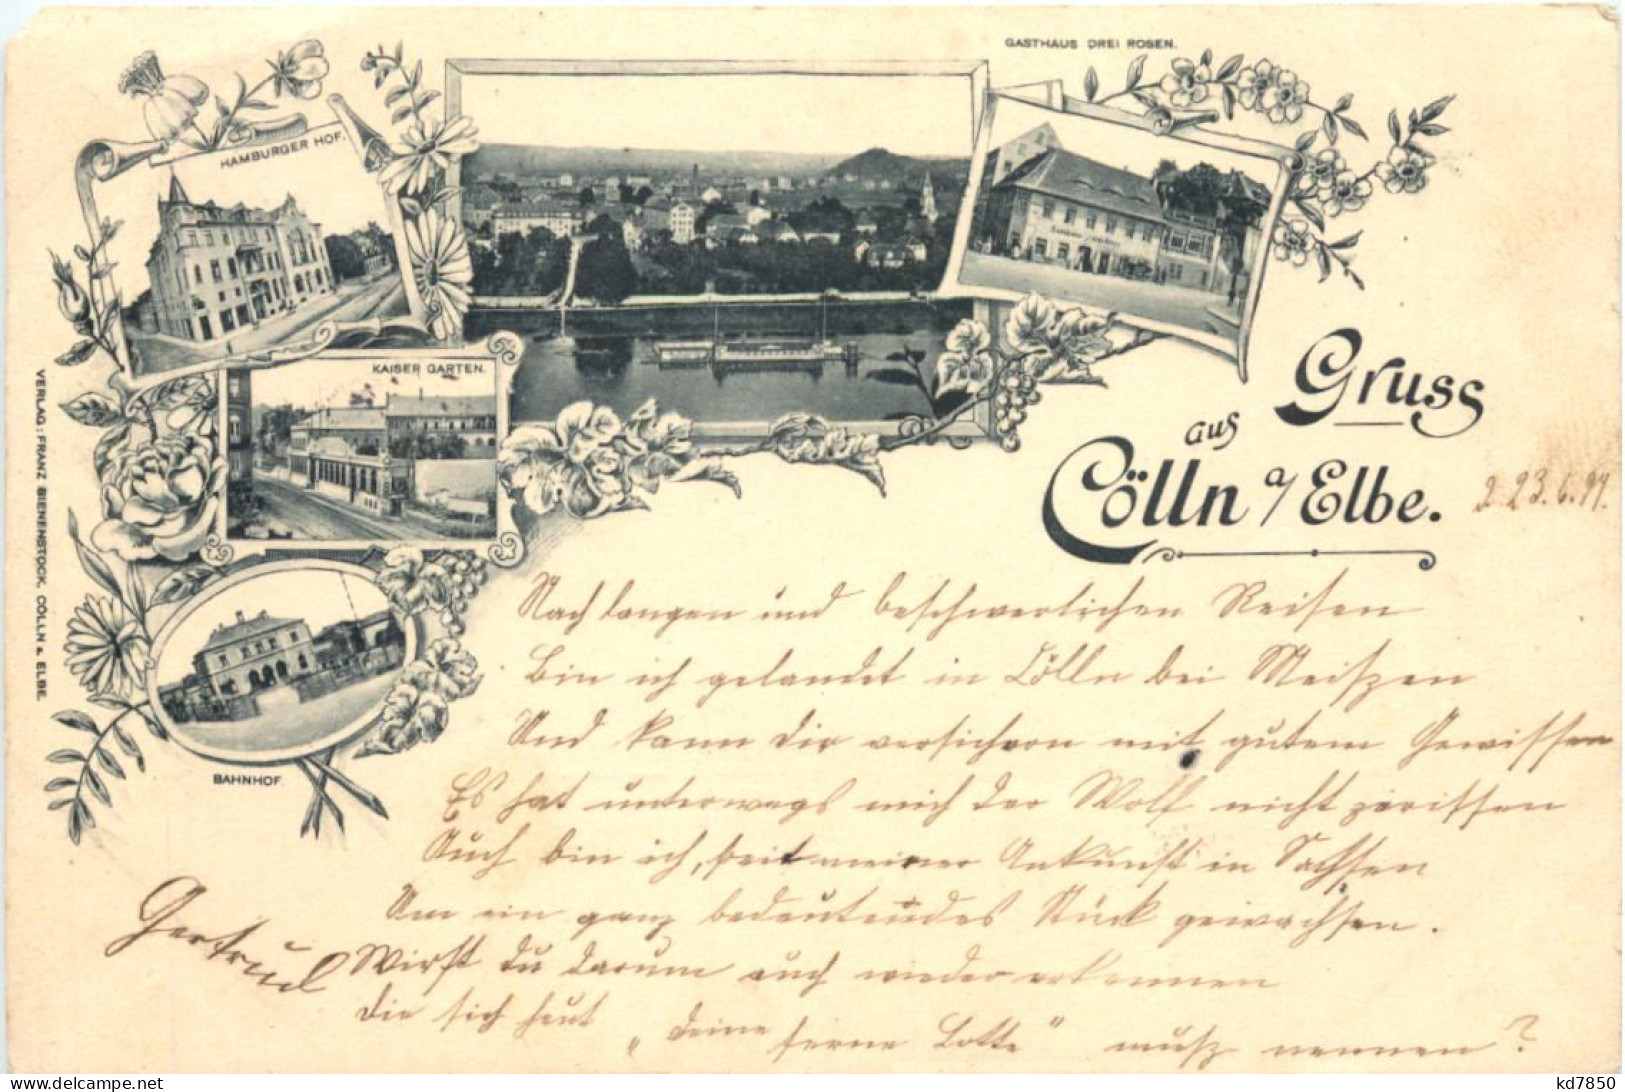 GASTHAUS DREI ROSEN.
HAMBURGER HOF.
KAISER GARTEN.
BAHNHOF.
VERLAG: FRANZ BIENENSTOCK, CÖLLN a. ELBE.
Gruss
aus
Cölln a/Elbe.
d. 23.6.97.
Nach langen und beschwerlichen Reisen
Bin ich gelandet in Cölln bei Meißen
Und kann dir versichern mit gutem Gewissen
Es hat unterwegs mich der Wolf nicht zerissen
Auch bin ich, seit meiner Ankunft in Sachsen
Um ein ganz bedeutendes Stück gewachsen.
Wirst du darum auch wieder erkennen
Die sich heut „deine ferne Lotte" muß nennen?
Gertrud
kd7850